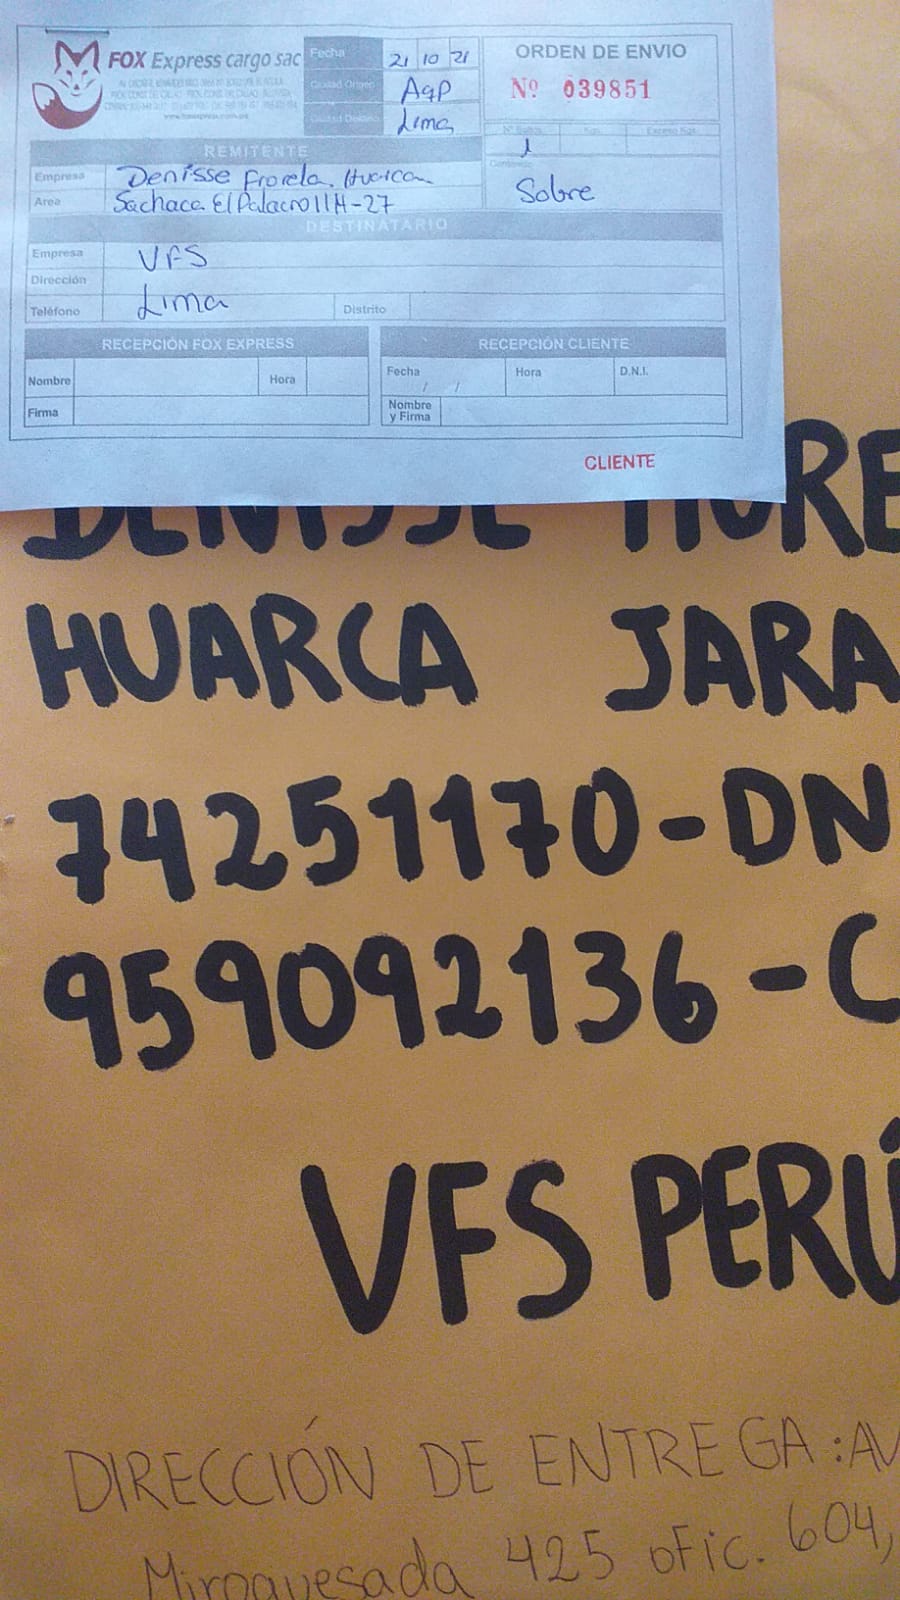 FOX Express cargo sac
www.foxexpress.com.pe
Fecha 21 10 21
Ciudad Origen AQP
Ciudad Destino Lima
ORDEN DE ENVIO
Nº 039851
Nº Bultos Kgs. Exceso Kgs.
1
Contenido
Sobre
REMITENTE
Empresa Denisse Fiorela Huarca
Area Sachaca El Palacio II H-27
DESTINATARIO
Empresa VFS
Dirección
Teléfono Lima Distrito
RECEPCIÓN FOX EXPRESS
Nombre Hora
Firma
RECEPCIÓN CLIENTE
Fecha / / Hora D.N.I.
Nombre y Firma
CLIENTE
DENISSE
HUARCA JARA
74251170-DN
959092136-C
VFS PERÚ
DIRECCIÓN DE ENTREGA: AV
Miroquesada 425 ofic. 604,